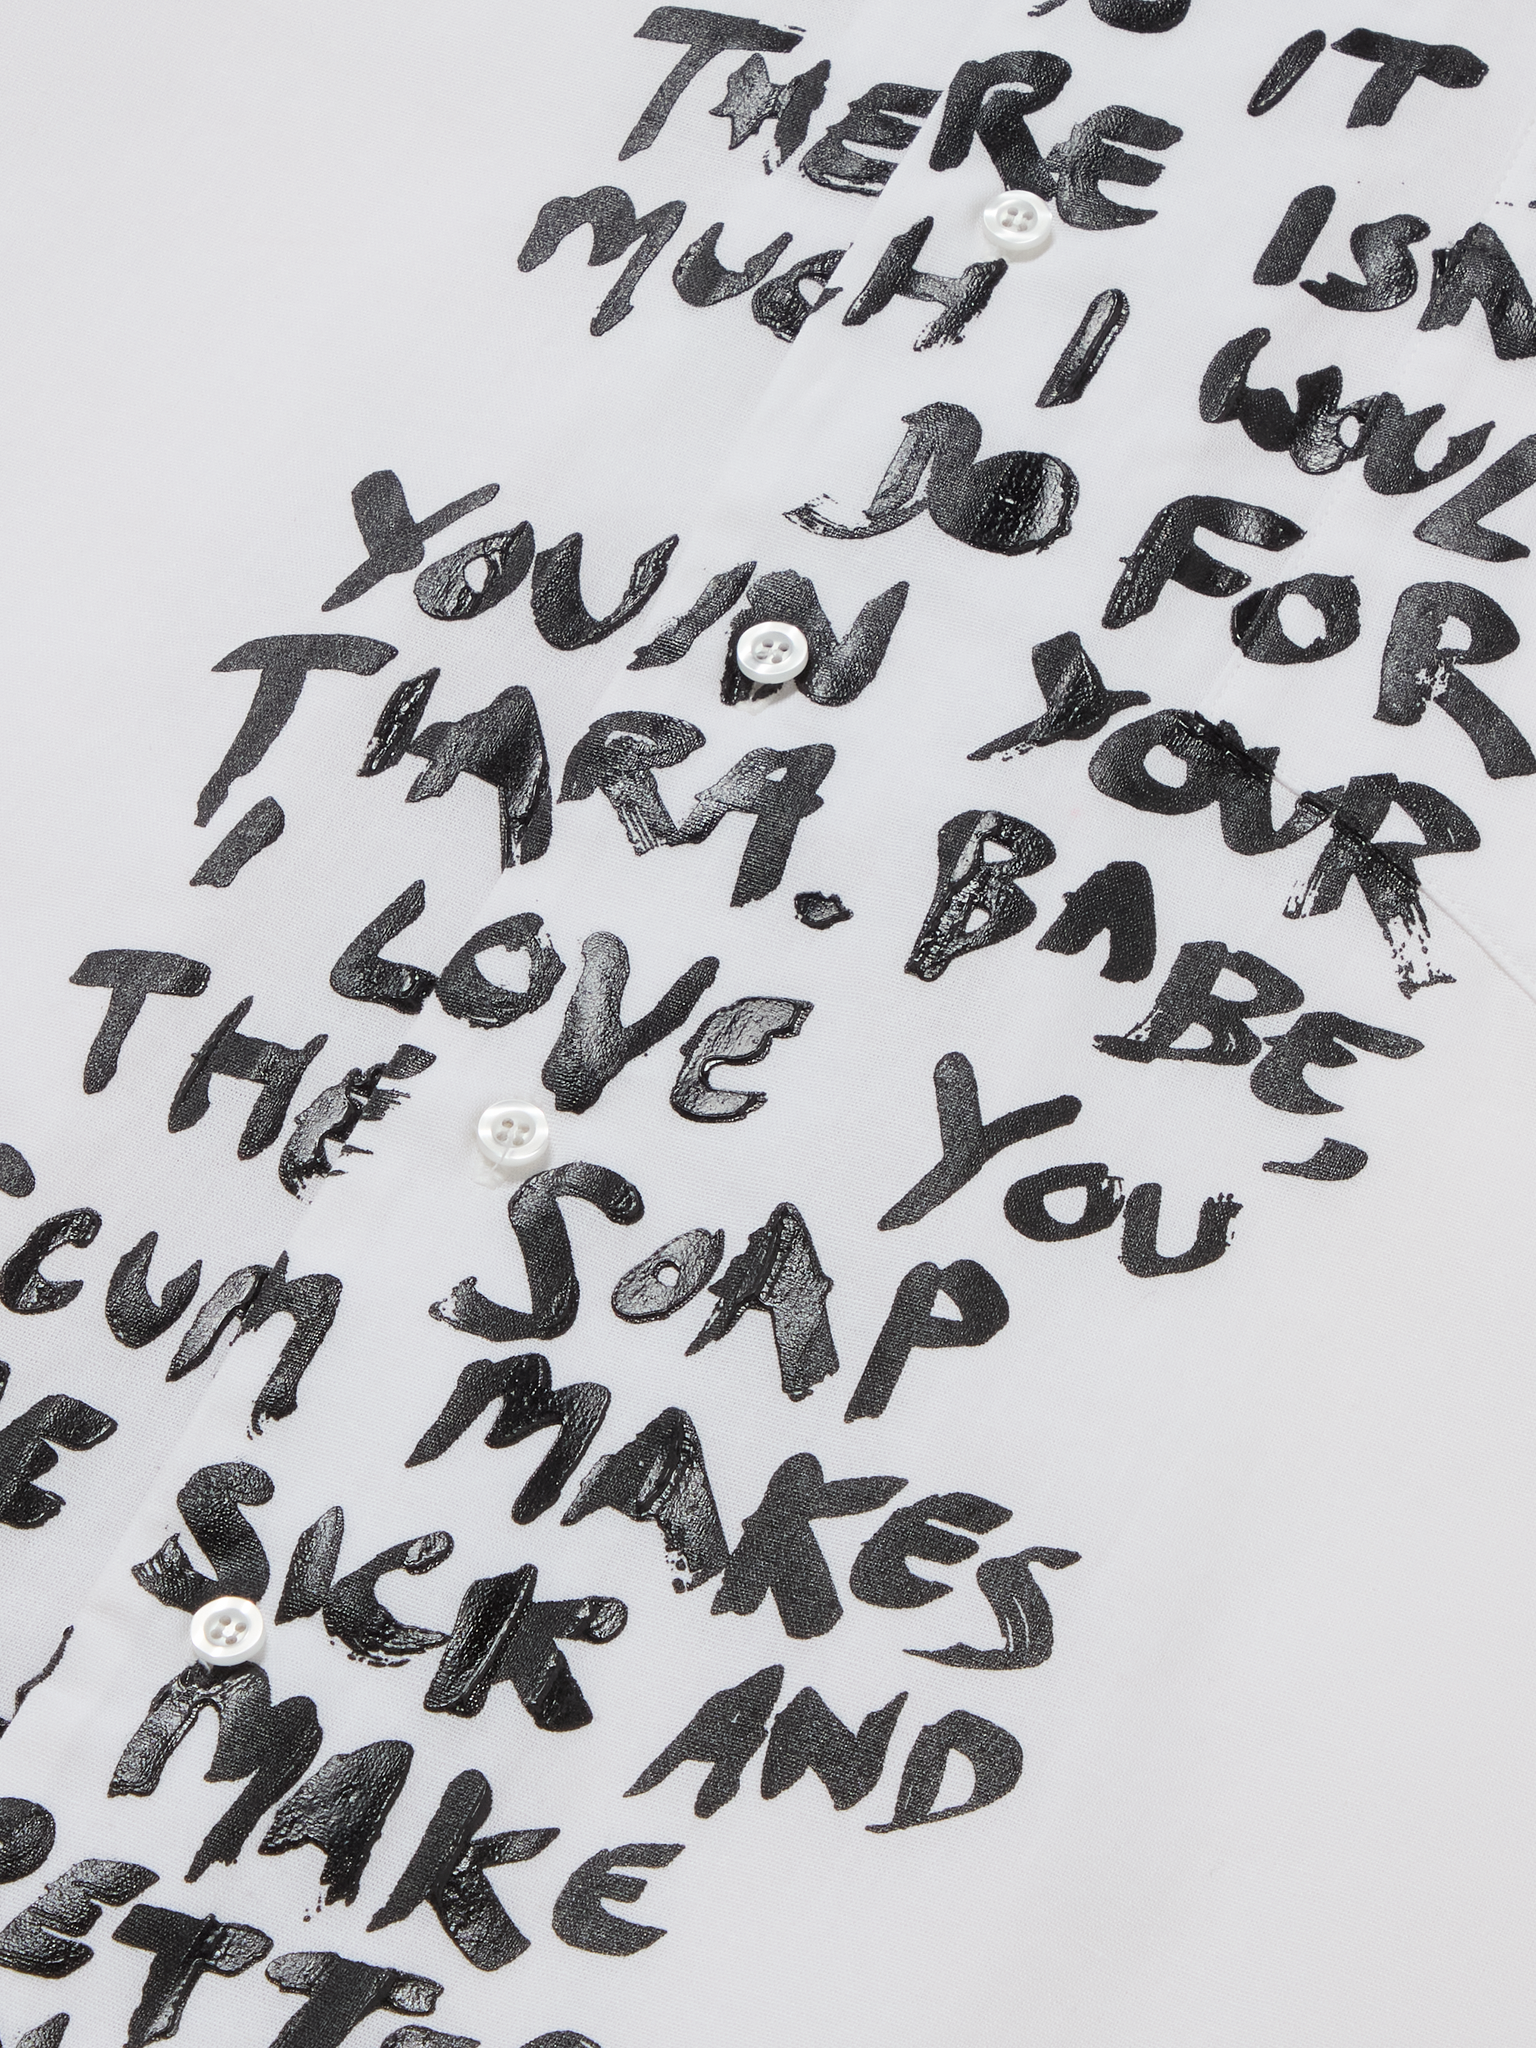 IT
THERE ISN
MUCH I WOUL
DO FOR
YOU IN YOUR
TIARA. BABE,
I LOVE YOU
THE SOAP
SCUM MAKES
SICK AND
MAKE